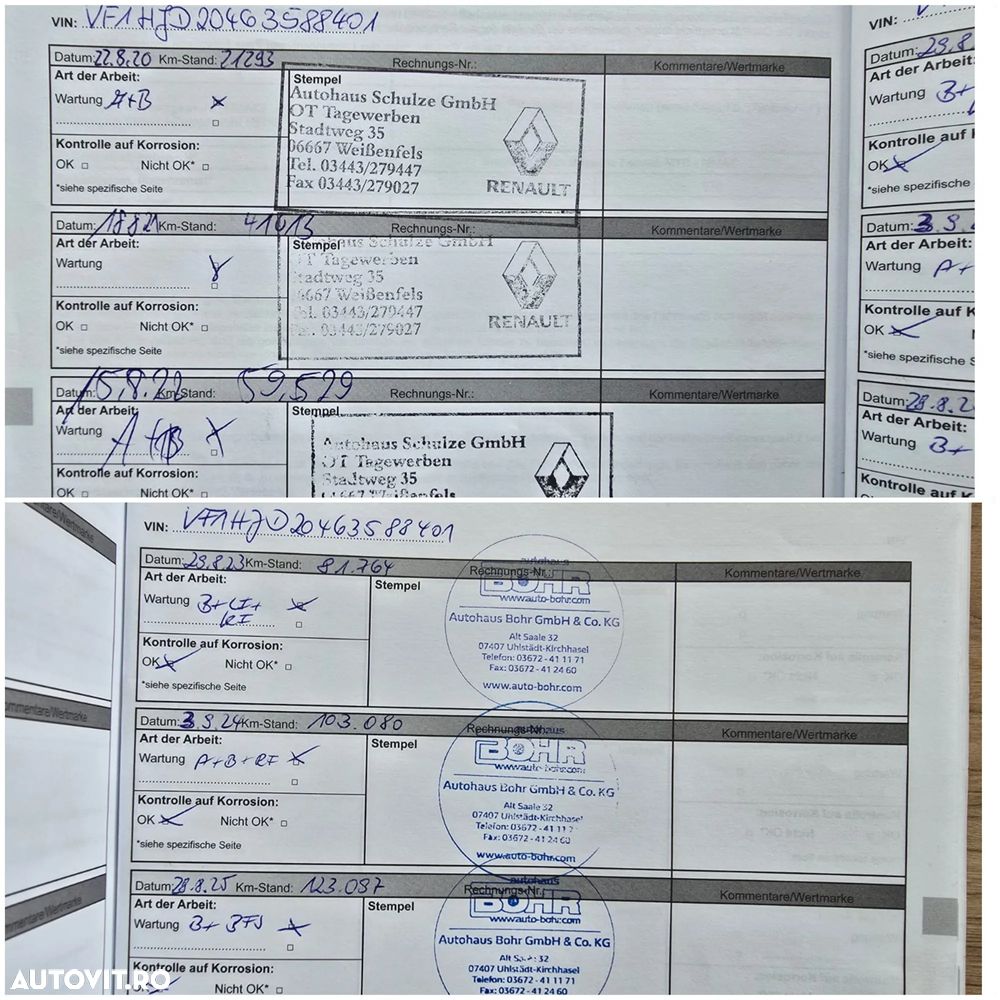 VIN: VF1HJD20463588401
Datum: 22.8.20 Km-Stand: 21293 Rechnungs-Nr.: Kommentare/Wertmarke
Art der Arbeit:
Wartung A+B
Kontrolle auf Korrosion:
OK Nicht OK*
*siehe spezifische Seite
Stempel
Autohaus Schulze GmbH
OT Tagewerben
Stadtweg 35
06667 Weißenfels
Tel. 03443/279447
Fax 03443/279027
RENAULT
Datum: 18.8.21 Km-Stand: 41013 Rechnungs-Nr.: Kommentare/Wertmarke
Art der Arbeit:
Wartung
Kontrolle auf Korrosion:
OK Nicht OK*
*siehe spezifische Seite
Stempel
Schulze GmbH
OT Tagewerben
Stadtweg 35
06667 Weißenfels
Tel. 03443/279447
Fax 03443/279027
RENAULT
Datum: 15.8.22 Km-Stand: 59,529 Rechnungs-Nr.: Kommentare/Wertmarke
Art der Arbeit:
Wartung A+B
Kontrolle auf Korrosion:
OK Nicht OK*
Stempel
Autohaus Schulze GmbH
OT Tagewerben
Stadtweg 35
06667 Weißenfels
VIN:
Datum: 29.8
Art der Arbeit:
Wartung B+
Kontrolle auf
OK
*siehe spezifische
Datum: 3.9.
Art der Arbeit:
Wartung A+
Kontrolle auf K
OK
*siehe spezifische S
Datum: 28.8.2
Art der Arbeit:
Wartung B+
Kontrolle auf
Kommentare/Wertmarke
Kommentare/Wertmarke
VIN: VF1HJD20463588401
Datum: 29.8.23 Km-Stand: 81.764 Rechnungs-Nr.: Kommentare/Wertmarke
Art der Arbeit:
Wartung B+LI+
RI
Kontrolle auf Korrosion:
OK Nicht OK*
*siehe spezifische Seite
Stempel
autohaus
BOHR
www.auto-bohr.com
Autohaus Bohr GmbH & Co. KG
Alt Saale 32
07407 Uhlstädt-Kirchhasel
Telefon: 03672 - 41 11 71
Fax: 03672 - 41 24 60
www.auto-bohr.com
Datum: 3.9.24 Km-Stand: 103.080 Rechnungs-Nr. Kommentare/Wertmarke
Art der Arbeit:
Wartung A+B+RI
Kontrolle auf Korrosion:
OK Nicht OK*
*siehe spezifische Seite
Stempel
autohaus
BOHR
www.auto-bohr.com
Autohaus Bohr GmbH & Co. KG
Alt Saale 32
07407 Uhlstädt-Kirchhasel
Telefon: 03672 - 41 11 7
Fax: 03672 - 41 24 60
www.auto-bohr.com
Datum: 28.8.25 Km-Stand: 123.087 Rechnungs-Nr.: Kommentare/Wertmarke
Art der Arbeit:
Wartung B+ BFS
Kontrolle auf Korrosion:
Nicht OK*
Stempel
autohaus
BOHR
www.auto-bohr.com
Autohaus Bohr GmbH & Co. KG
Alt Saale 32
07407 Uhlstädt-Kirchhasel
Telefon: 03672 - 41 11 71
Fax: 03672 - 41 24 60
AUTOVIT.RO